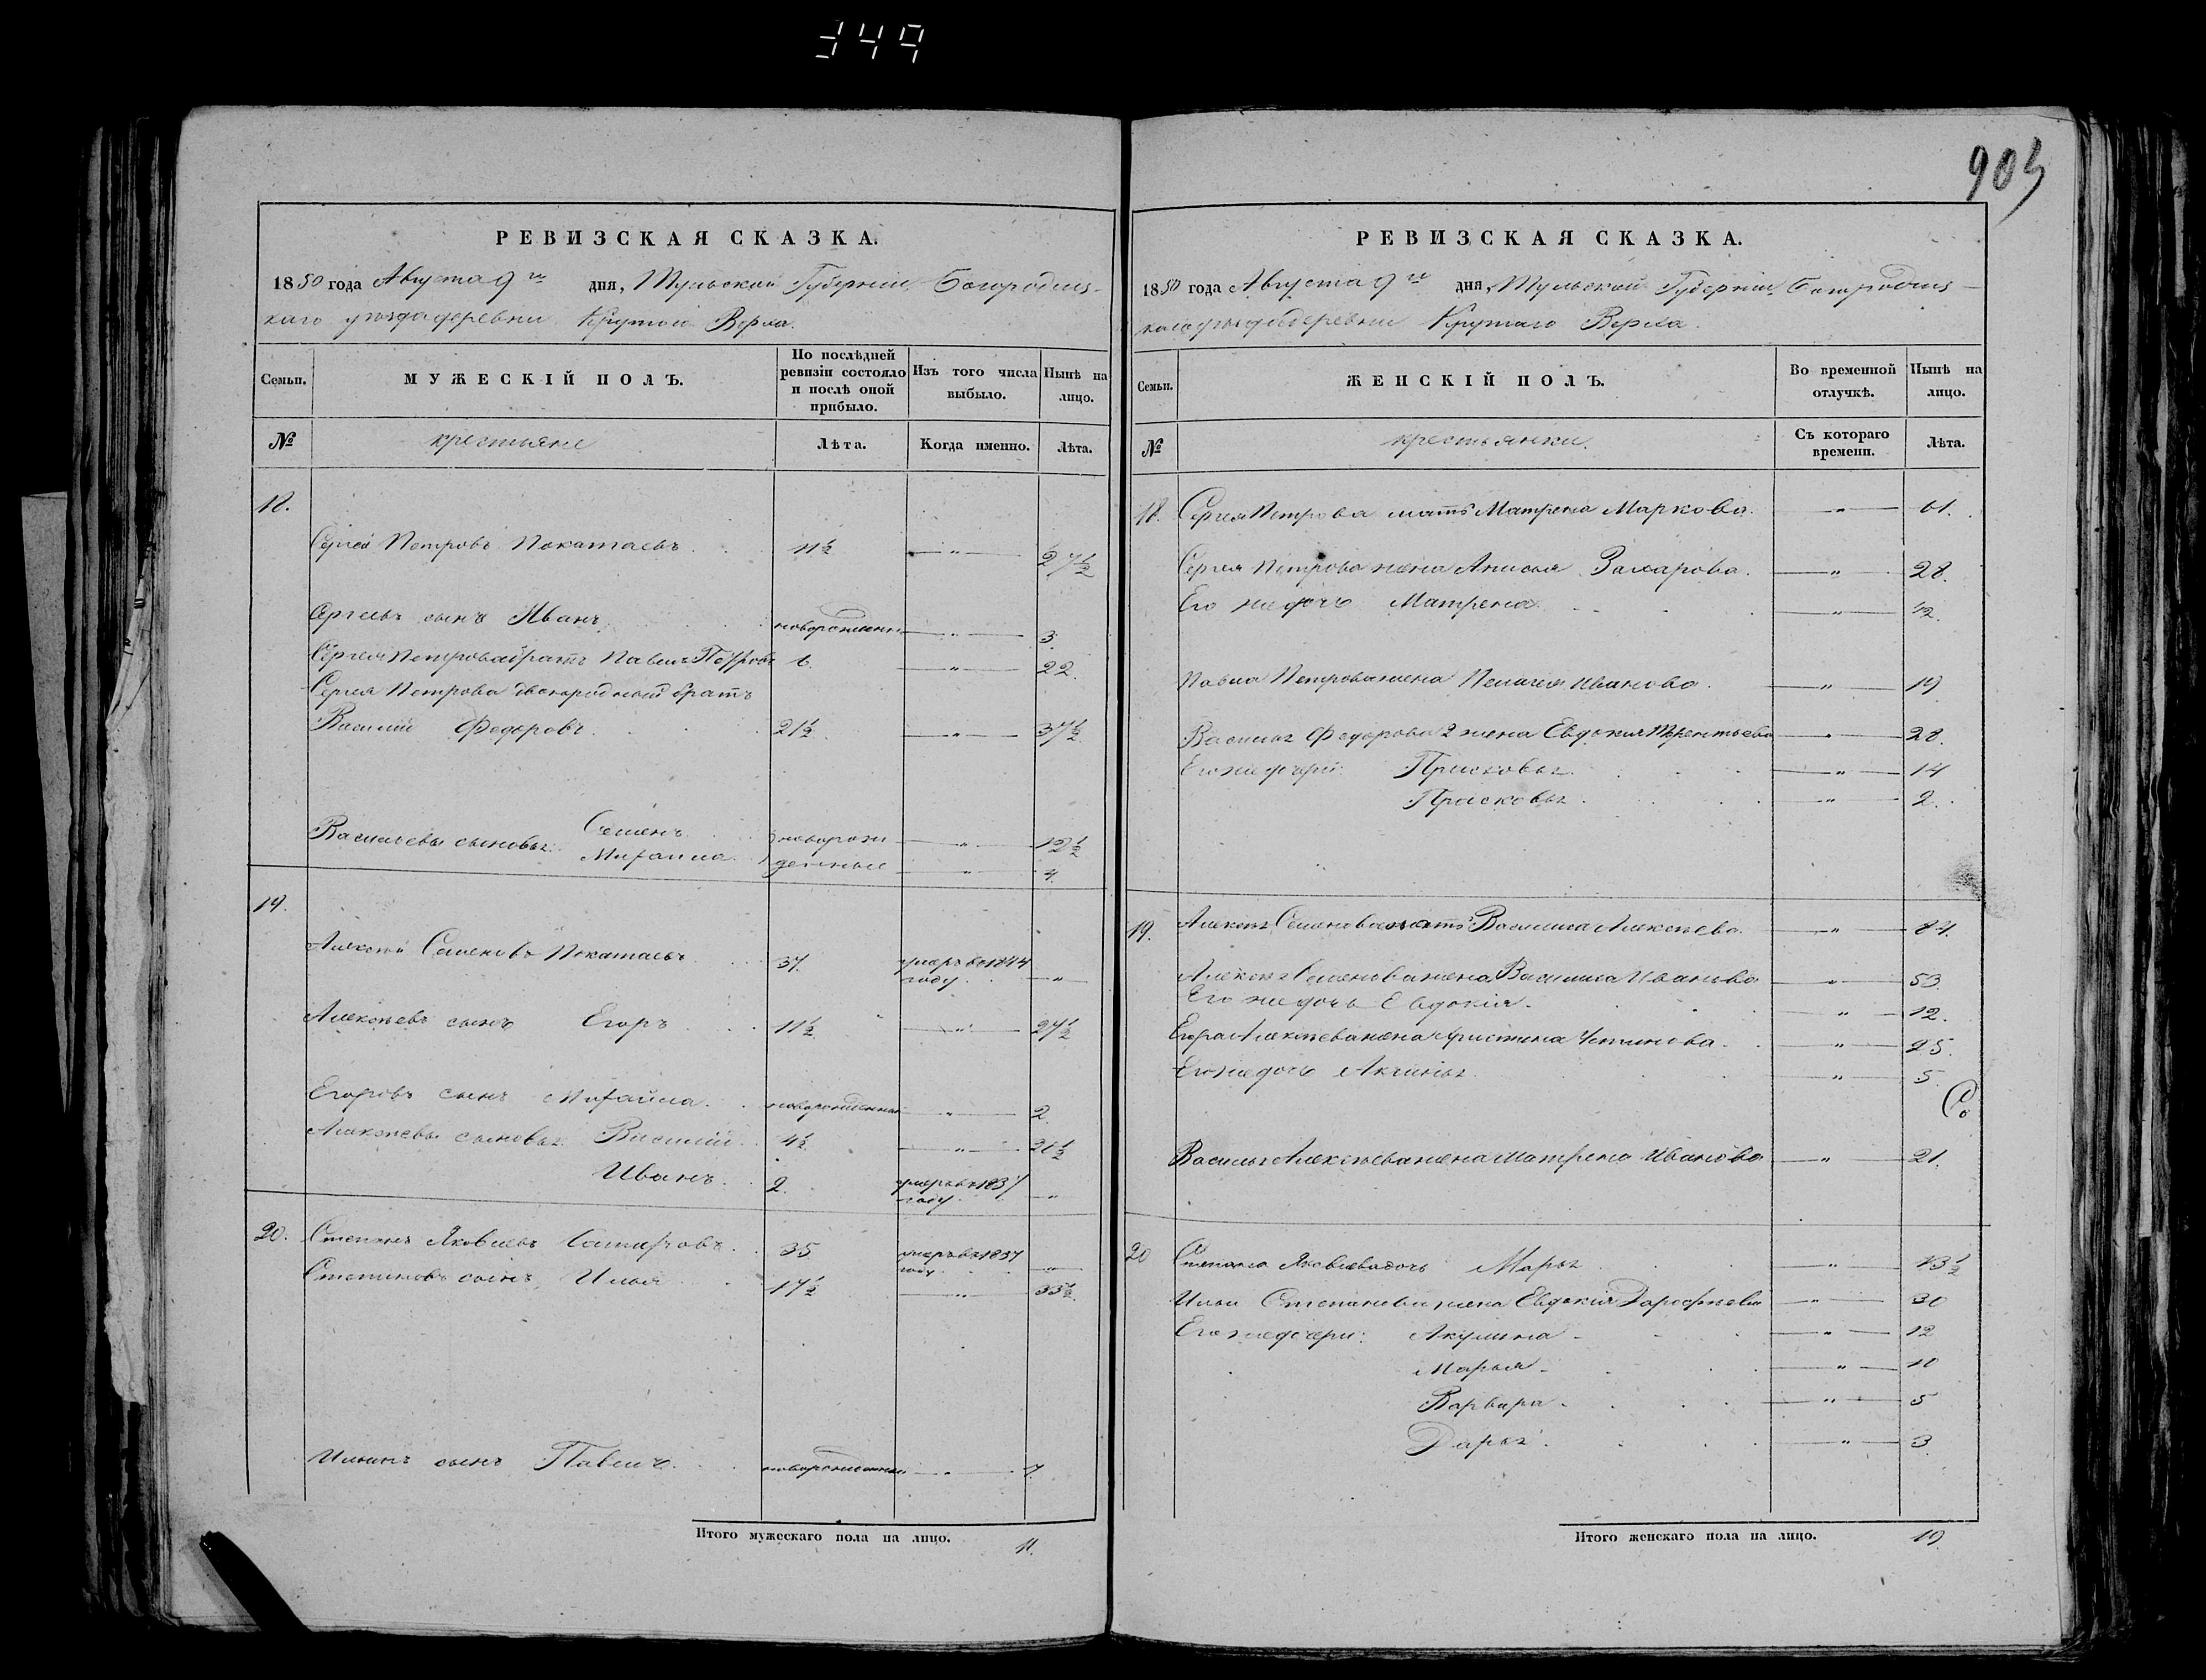 349
903
РЕВИЗСКАЯ СКАЗКА.
1850 года Августа 9го дня, Тульской Губерніи Богородиц-
каго уѣзда деревни Крутого Верха.
Семьи.
МУЖЕСКІЙ ПОЛЪ.
По послѣдней ревизіи состояло и послѣ оной прибыло.
Изъ того числа выбыло.
Нынѣ на лицо.
№
крестьяне
Лѣта.
Когда именно.
Лѣта.
18.
Сергей Петровъ Покатаевъ 11½ — „ — 27½
Сергеевъ сынъ Иванъ новорожденный — „ — 3.
Сергея Петрова братъ Павелъ Петровъ 6. — „ — 22.
Сергея Петрова двоюродный братъ
Василий Федоровъ 21½ — „ — 37½
Васильевы сыновья: Семенъ новорож — „ — 12½
Михайла денные — „ — 4.
19.
Алексей Семеновъ Покатаевъ 37. умеръ въ 1844
году — „ —
Алексѣевъ сынъ Егоръ 11½ — „ — 27½
Егоровъ сынъ Михайла новорожденный — „ — 2
Алексѣевы сыновья Василий 4½ — „ — 20½
Иванъ 2. умеръ въ 1837
году — „ —
20. Степанъ Яковлевъ 35 умеръ въ 1837
году — „ —
Степановъ сынъ Илья 17½ — „ — 33½
Ильинъ сынъ Павелъ новорожденный — „ — 7.
Итого мужескаго пола на лицо. 11.
РЕВИЗСКАЯ СКАЗКА.
1850 года Августа 9го дня, Тульской Губерніи Богородиц-
каго уѣзда деревни Крутаго Верха.
Семьи.
ЖЕНСКІЙ ПОЛЪ.
Во временной отлучкѣ.
Нынѣ на лицо.
№
крестьянки.
Съ котораго времени.
Лѣта.
18. Сергея Петрова мать Матрена Маркова. — „ — 61.
Сергея Петрова жена Анисья Захарова. — „ — 28.
Его же дочь Матрена — „ — 12.
Павла Петрова жена Пелагея Иванова. — „ — 19
Василья Федорова 2 жена Евдокия Терентьева — „ — 28.
Его же дочери: Прасковья — „ — 14
Прасковья — „ — 2.
19. Алексея Семенова мать Василиса Алексѣева. — „ — 84.
Алексея Семенова жена Василиса Иванова — „ — 53
Его же дочь Евдокія — „ — 12.
Егора Алексѣева жена Христина Устинова. — „ — 25.
Его же дочь Аксинья — „ — 5.
Василья Алексѣева жена Матрена Иванова — „ — 21.
20 Степана Яковлева дочь Марья — „ — 13½
Ильи Степанова жена Евдокія Дорофѣева — „ — 30
Его же дочери: Акулина — „ — 12
Марья — „ — 10
Варвара — „ — 5
Дарья — „ — 3
Итого женскаго пола на лицо. 19